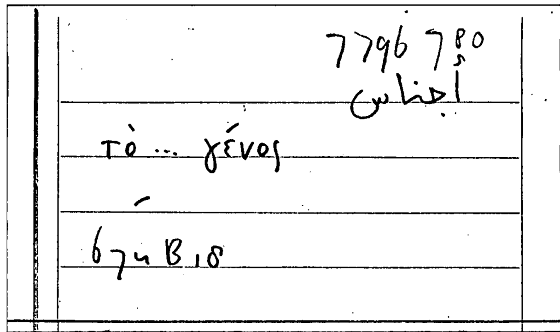 7796 780
أجناس
τὸ ... γένος
B 18